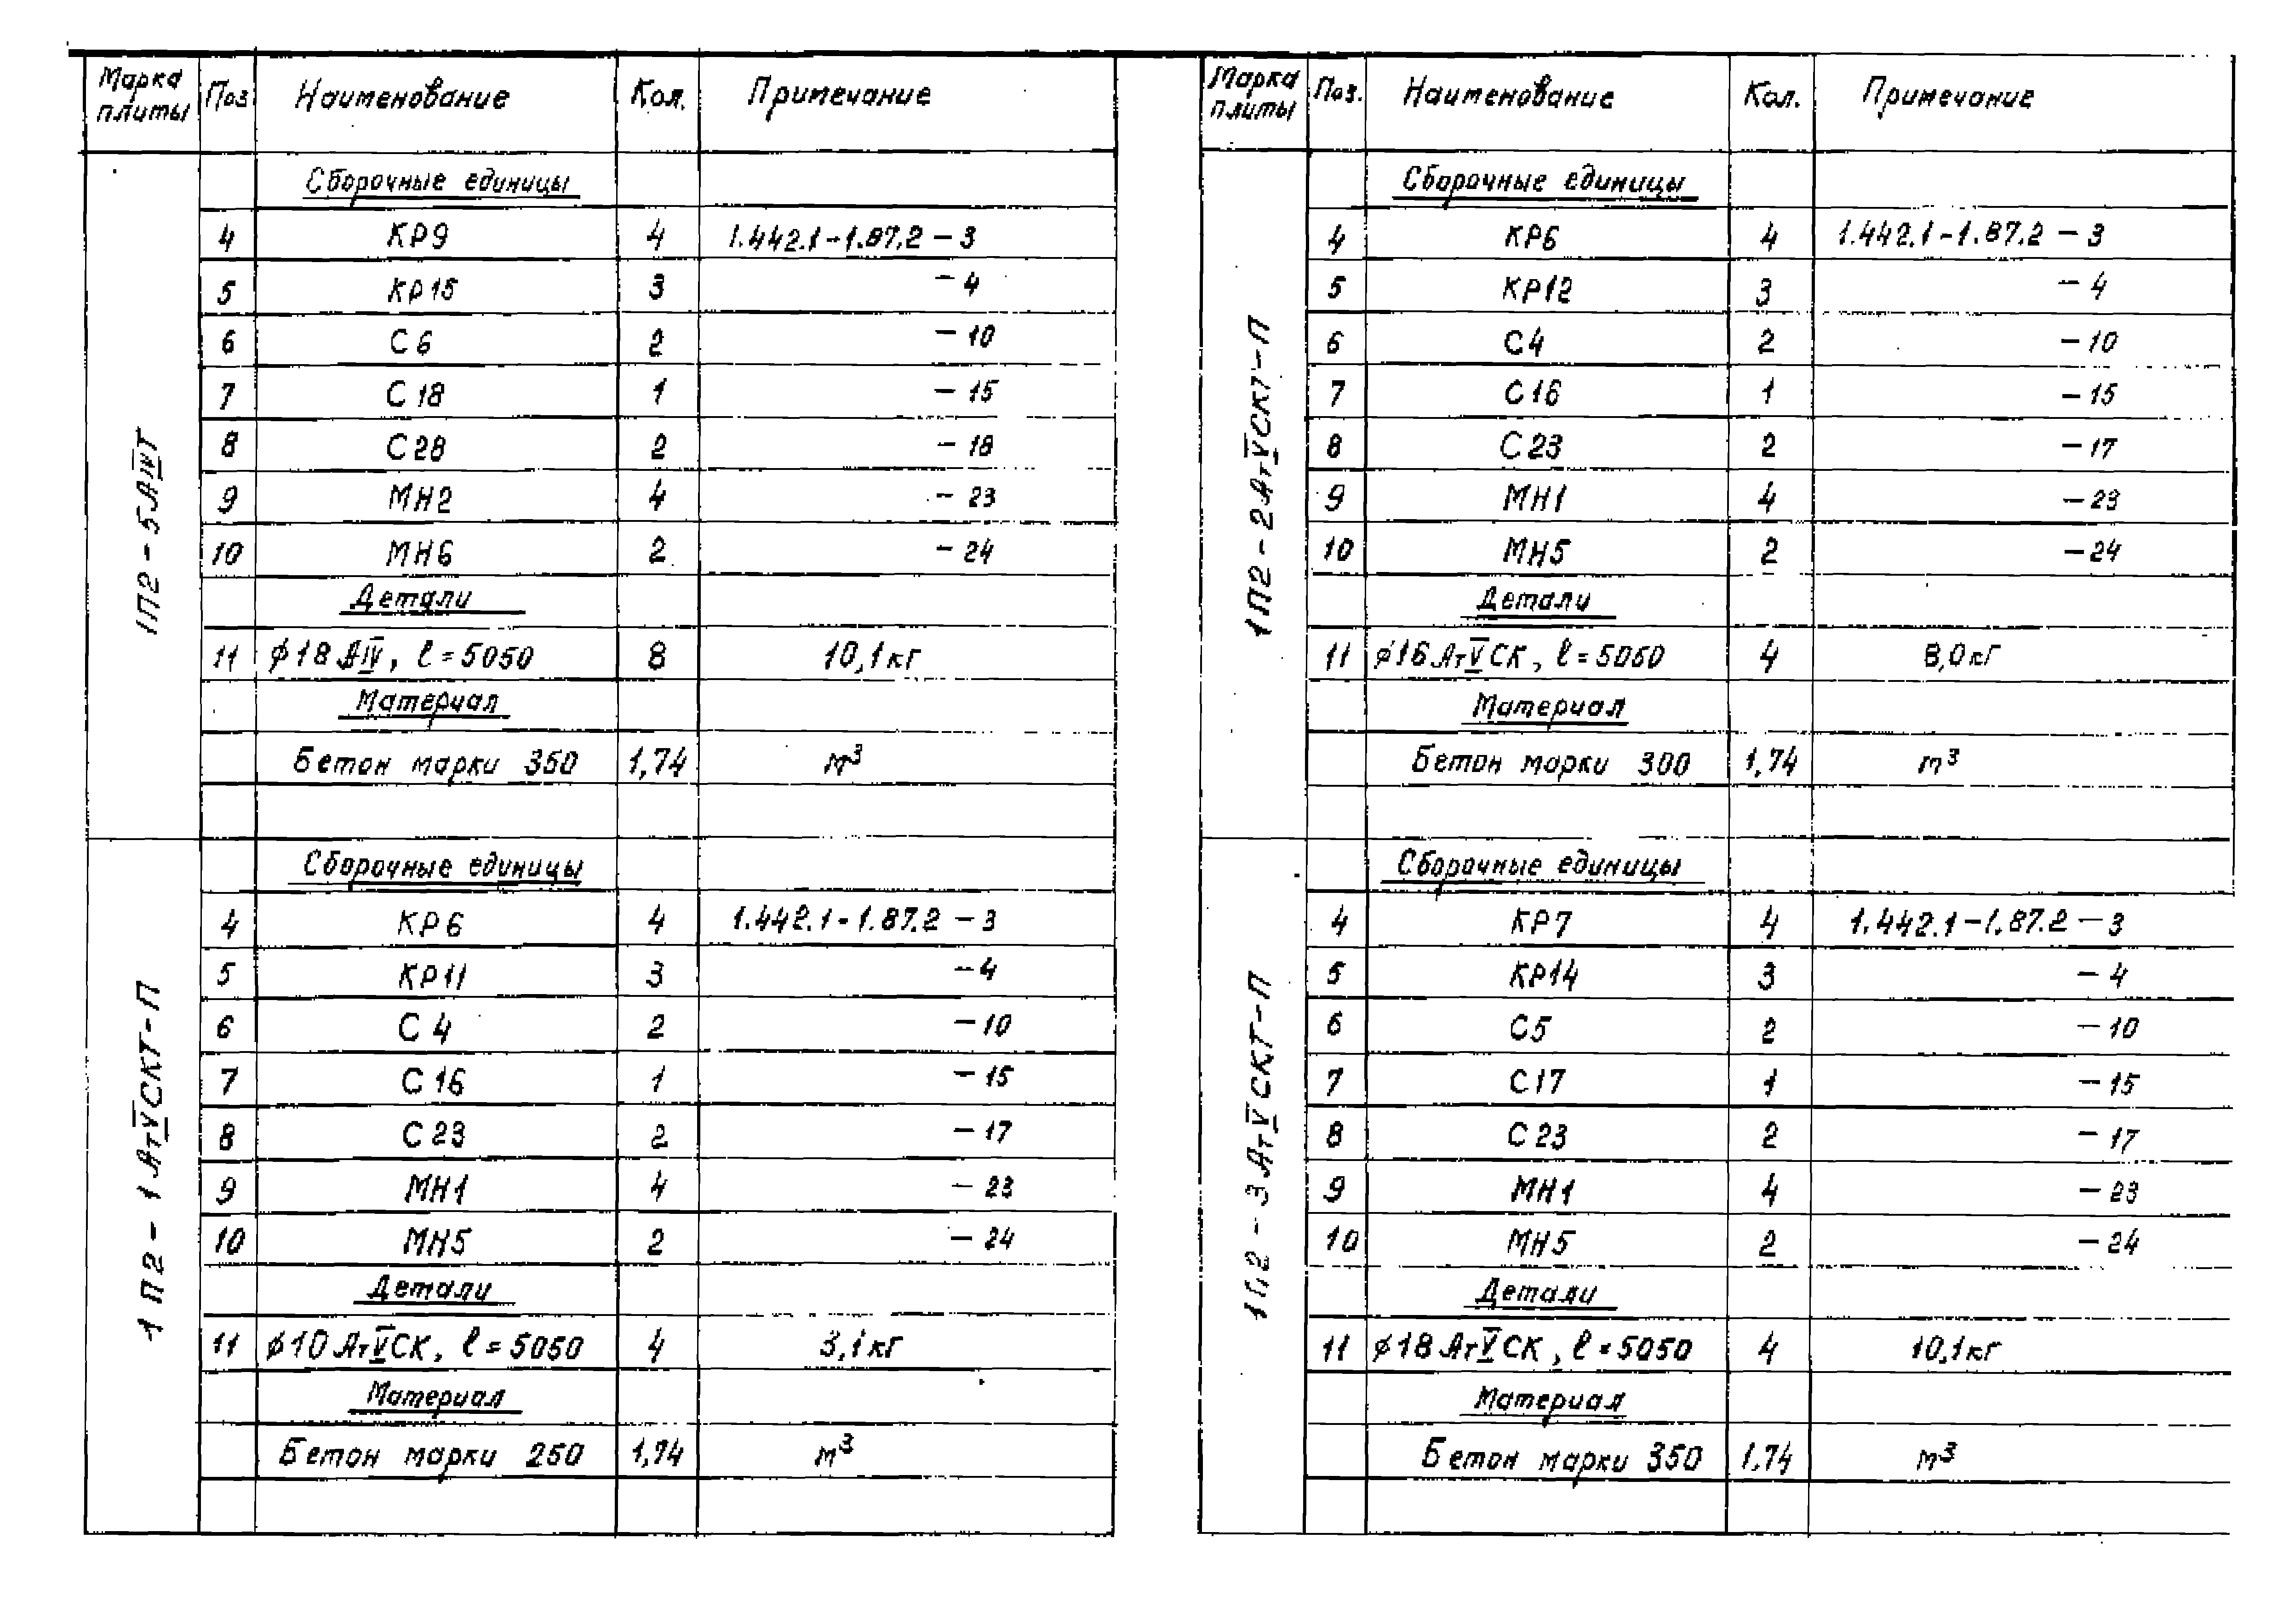 Марка плиты Поз Наименование Кол. Примечание
1П2-5АIVТ
Сборочные единицы
4 КР9 4 1.442.1-1.87.2-3
5 КР15 3 -4
6 С6 2 -10
7 С18 1 -15
8 С28 2 -18
9 МН2 4 -23
10 МН6 2 -24
Детали
11 φ18 АIV, ℓ=5050 8 10,1кг
Материал
Бетон марки 350 1,74 м³
1П2-1АтVСКТ-П
Сборочные единицы
4 КР6 4 1.442.1-1.87.2-3
5 КР11 3 -4
6 С4 2 -10
7 С16 1 -15
8 С23 2 -17
9 МН1 4 -23
10 МН5 2 -24
Детали
11 φ10 АтVСК, ℓ=5050 4 3,1кг
Материал
Бетон марки 250 1,74 м³
Марка плиты Поз. Наименование Кол. Примечание
1П2-2АтVСКТ-П
Сборочные единицы
4 КР6 4 1.442.1-1.87.2-3
5 КР12 3 -4
6 С4 2 -10
7 С16 1 -15
8 С23 2 -17
9 МН1 4 -23
10 МН5 2 -24
Детали
11 φ16 АтVСК, ℓ=5050 4 8,0кг
Материал
Бетон марки 300 1,74 м³
1П2-3АтVСКТ-П
Сборочные единицы
4 КР7 4 1.442.1-1.87.2-3
5 КР14 3 -4
6 С5 2 -10
7 С17 1 -15
8 С23 2 -17
9 МН1 4 -23
10 МН5 2 -24
Детали
11 φ18 АтVСК, ℓ=5050 4 10,1кг
Материал
Бетон марки 350 1,74 м³